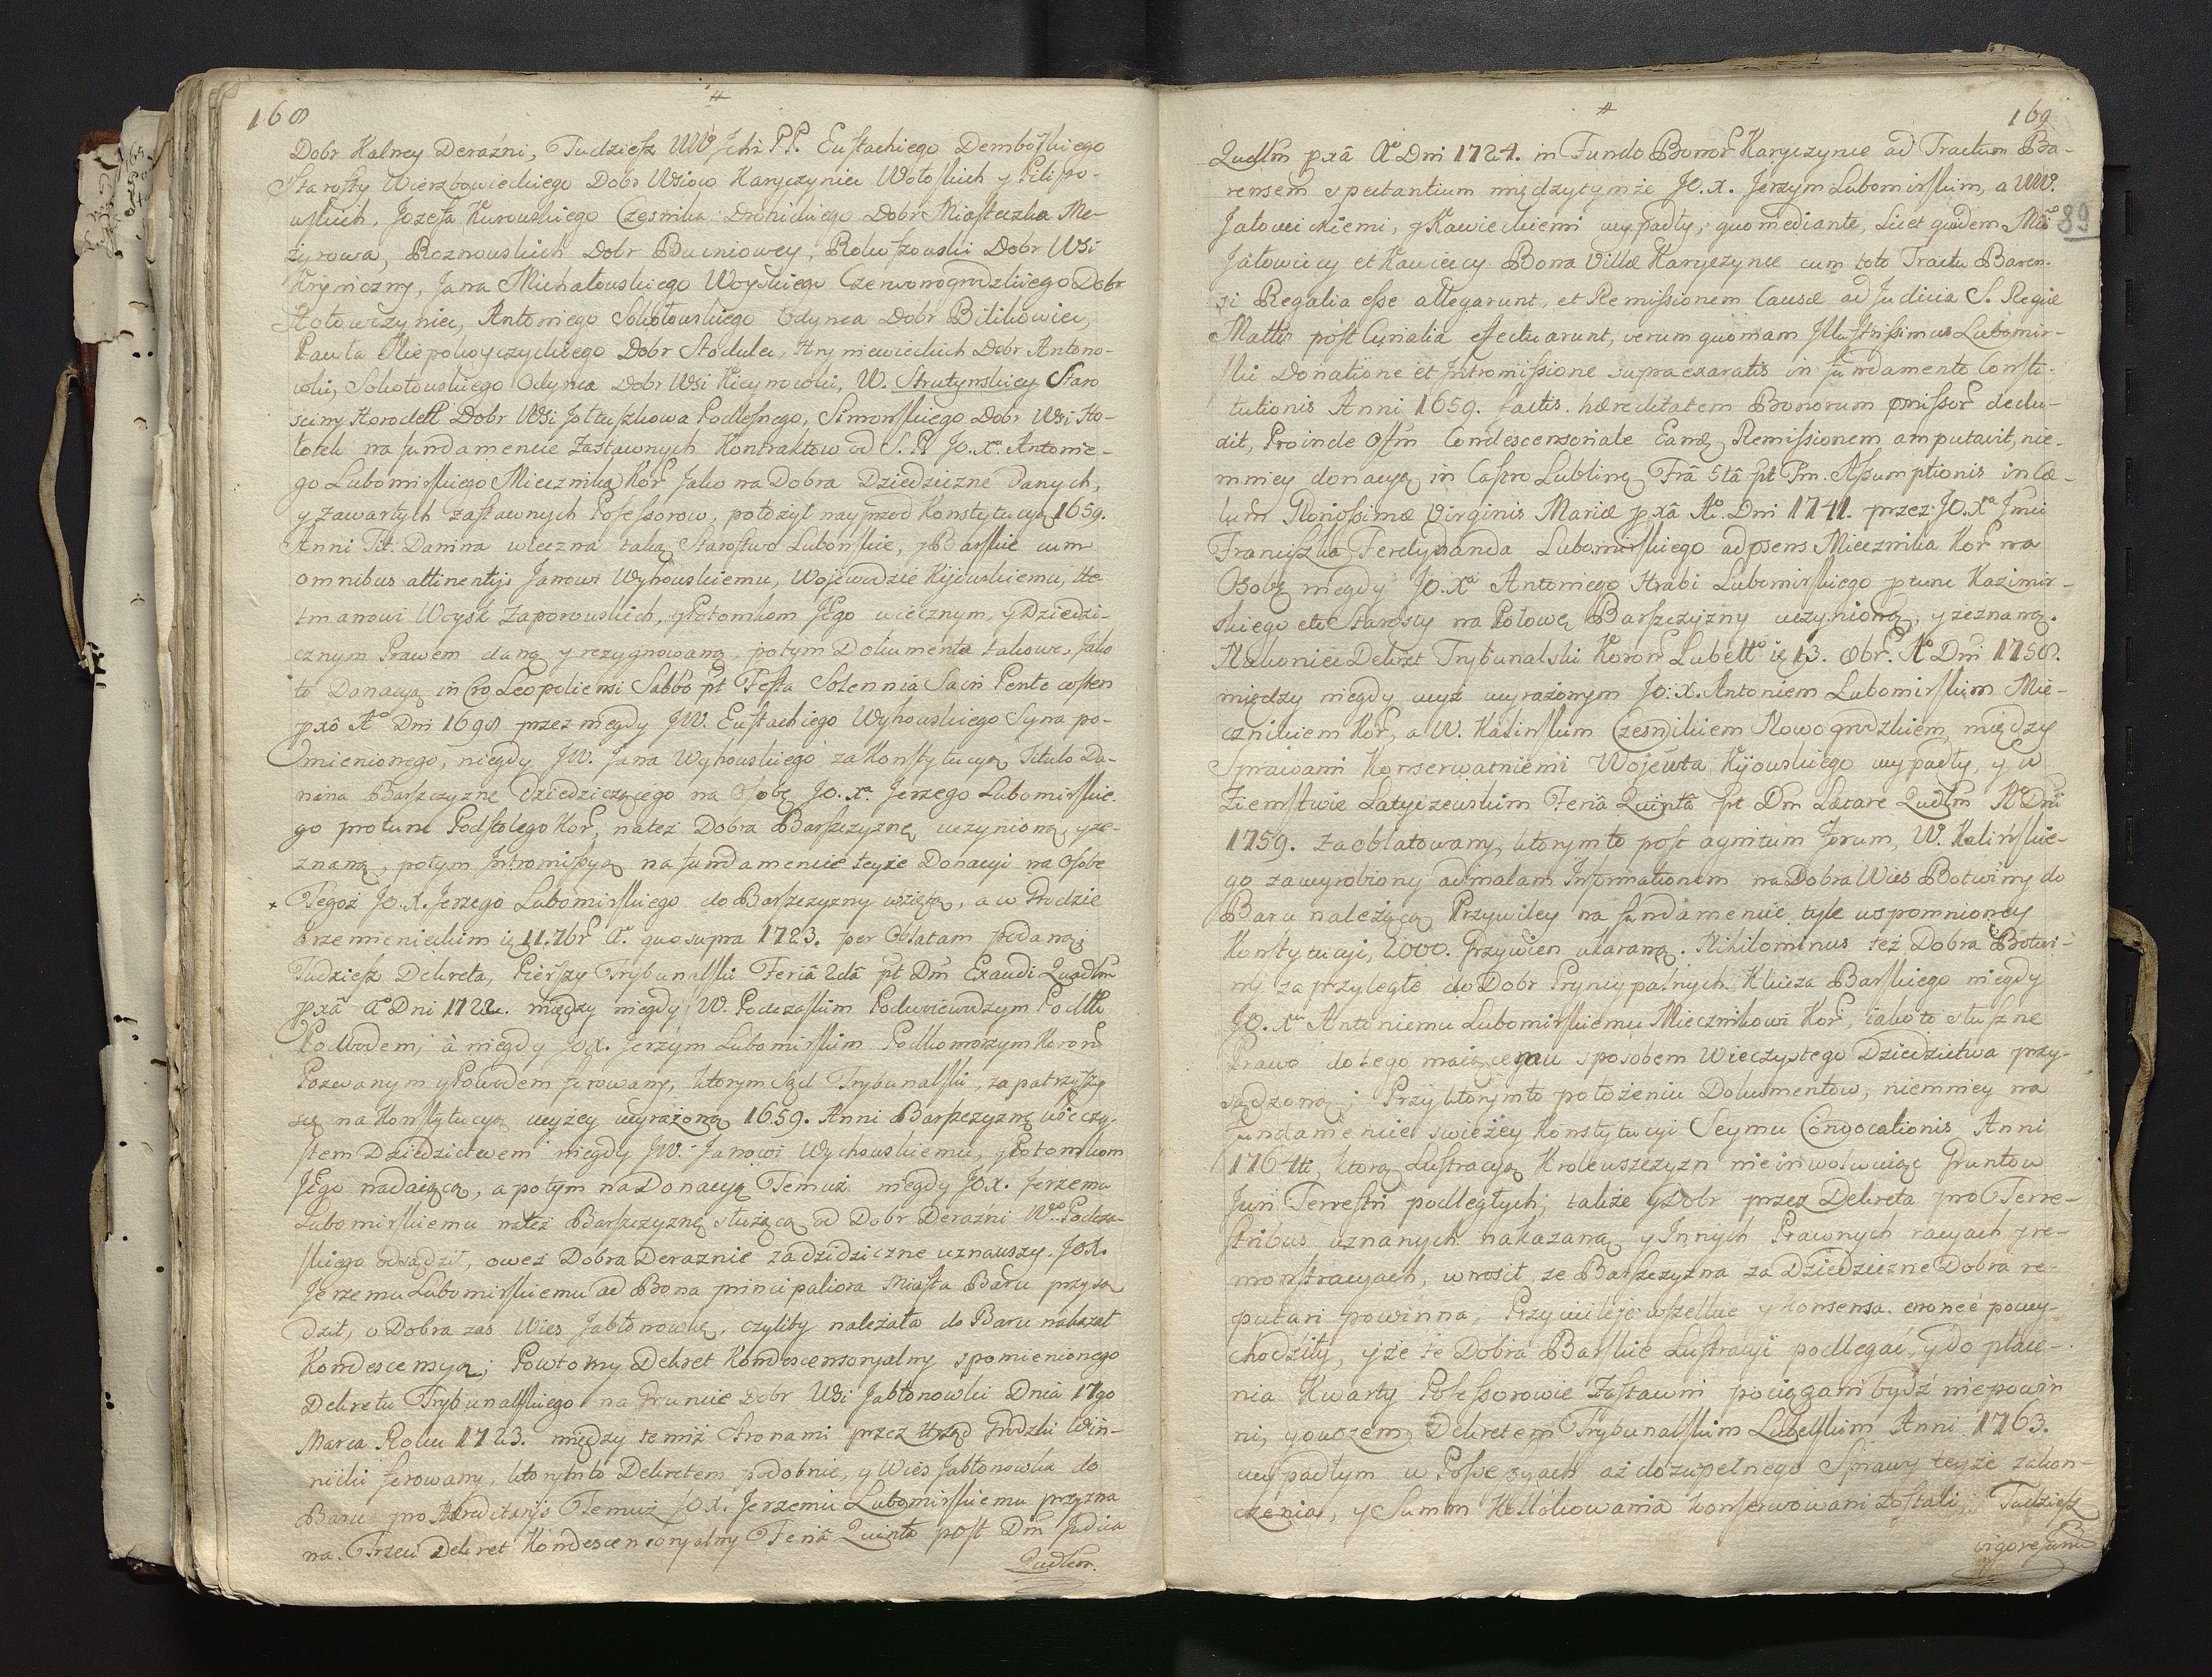 168
Dobr Kalney Derażni, Tudziesz WW Jchi PP. Eustachiego Dembowskiego
Starosty Wierzbowieckiego Dobr Wsiow Karyczyniec Wołoskich y Pilipo-
wskich, Jozefa Kurowskiego Czesnika Dobr Miasteczka Me-
żyrowa, Roznowskich Dobr Bucniowey, Dobr Wsi
Jana Michałowskiego Woyskiego Czerwonogrodzkiego Dobr
Hołowczyniec, Antoniego Sokołowskiego Odynca Dobr Bilikowiec,
Pawła Niepokoyczyckiego Dobr Stodulec, Hryniewieckich Dobr Antono-
wki, Sokołowskiego Odynca Dobr Wsi W. Strutynskiey Staro
sciny Horodell Dobr Wsi Jołtuszkowa Podlesnego, Simonskiego Dobr Wsi Ho-
łotek na fundamencie Zastawnych Kontraktow od S. P. Jo. Xa. Antonie-
go Lubomirskiego Miecznika Kor Jako na Dobra Dziedziczne danych,
y zawartych zastawnych Possessorow, położył nayprzod Konstytucyą 1659.
Anni Tit: Danina wieczna taką Starostwo Lubomskie, y Barskie cum
omnibus attinentijs Janowi Wyhowskiemu, Wojewodzie Kijowskiemu, He-
tmanowi Woysk Zaporowskich, y Potomkom Jego wiecznym, y Dziedzi-
cznym Prawem daną y rezygnowaną, potym Dokumenta takowe, Jako
to Donacyą in Cro Leopoliensi Sabbo pt Festa Solennia Sacri Pentecosten
pxô Aº Dni 1698 przez niegdy JW. Eustachiego Wyhowskiego Syna po-
mienionego, niegdy JW. Jana Wyhowskiego za Konstytucyą Titulo Da-
nina Barszczyznę Dziedziczącego na Osobę Jo. Xa. Jerzego Lubomirskie-
go protunc Podstolego Kor, nateż Dobra Barszczyznę uczynioną, y ze-
znaną, potym Intromissyą na fundamencie teyże Donacyi na Osobe
Tegoż Jo. X. Jerzego Lubomirskiego do Barszczyzny wziętą, a w Grodzie
Krzemienieckim ię 11. 7br Aº. quo supra 1723. per Oblatam podaną;
Tudziesz Dekreta, Pierszy Trybunalski Feriâ 2dâ pt Dm Exaudi Quadlm
pxâ Aº Dni 1722. między niegdy W. Podczaskim Podwoiewodzym Podll
Powodem, à niegdy Jo. X. Jerzym Lubomirskim Podkomorzym Koron
Pozwanym y Powodem ferowany, ktorym Sąd Trybunalski, zapatrzyszy
się na Konstytucyą wyzey wyrażoną 1659. Anni Barszczyznę wieczy-
stem Dziedzictwem niegdy JW. Janowi Wychowskiemu, y Potomkom
Jego nadaiącą, a potym na Donacyą Temuż niegdy Jo. X. Jerzemu
Lubomirskiemu nateż Barszczyznę służącą od Dobr Derażni Wgo Podcza-
skiego odsądził, oweż Dobra Deraznie za dzidziczne uznawszy. Jo. X.
Jerzemu Lubomirskiemu ad Bona principaliora Miasta Baru przysą
dził, o Dobra zas Wies Jabłonowkę, czyliby należała do Baru nakazał
Kondescensyą; Powtorny Dekret Kondescensoryalny spomienionego
Dekretu Trybunalskiego na Gruncie Dobr Wsi Jabłonowki Dnia 17go
Marca Roku 1723. między temiż stronami przez Urząd Grodzki Win-
nicki ferowany, ktorymto Dekretem podobnie, y Wies Jabłonowka do
Baru pro Haereditarijs Temuż Jo. X. Jerzemu Lubomirskiemu przyzna
na. Trzeci Dekret Kondescensoryalny Feriâ Quintâ post Dm Judica
Quadlm.
169
89
Quadlm pxâ Aº Dni 1724. in Fundo Bonor Karyczynce ad Tractum Ba-
rensem spectantium między tymże Jo. X. Jerzym Lubomirskim, a WW.
Jałowickiemi, y Kawieckiemi wypadły, quo mediante, licet quidem
Jałowiccy et Kawieccy Bona Villae Karyczynce cum toto Tractu Baren-
si Regalia esse allegarunt, et Remissionem Causae ad Judicia S. Regiae
Mattis post Curialia effectuarunt, verum quoniam Illustrissimus Lubomir-
ski Donatione et Intromissione supra exaratis in fundamento Consti-
tutionis Anni 1659. factis. haereditatem Bonorum pmissor dedu-
xit, Proinde Offm Condescensoriale Eamq Remissionem amputavit, nie-
mniey donacyą in Castro Lublinę Frâ 5tâ pt Fm. Assumptionis in Cae-
lum Gloriossimae Virginis Mariae pxâ Aº. Dni 1741. przez Jo. Xa Jmci
Franciszka Ferdynanda Lubomirskiego adpsens Miecznika Kor na
Osobę niegdy Jo. Xa Antoniego Hrabi Lubomirskiego ptunc Kazimir-
skiego etc Starosty na Połowę Barszczyzny uczynioną, y zeznaną.
Nakoniec Dekret Trybunalski Koron Lubell ię 13. 8br. Aº Dni 1758.
między niegdy wyż wyrażonym Jo. X. Antoniem Lubomirskim Mie-
cznikiem Kor, a W. Kalinskim Czesnikiem Nowogrodzkiem, między
Sprawami Konserwatniemi Wojewta Kijowskiego wypadły, y w
Ziemstwie Latyczewskim Feriâ Quintâ pt Dm Laetare Quadlm Aº Dni
1759. zaoblatowany, ktorymto post agnitum Forum, W. Kalińskie-
go za wyrobiony ad malam Informationem na Dobra Wies Botwiny do
Baru należącą Przywiley na fundamencie tyle wspomnioney
Konstytucyi, 2000. Grzywien ukaraną. Nihilominus też Dobra Botwi-
ny za przyległe do Dobr Pryncypalnych Klucza Barskiego niegdy
Jo. Xu Antoniemu Lubomirskiemu Miecznikowi Kor, iako to słuszne
Prawo do tego maiącemu sposobem Wieczystego Dziedzictwa przy-
sądzoną; Przy ktorymto położeniu Dokumentow, niemniey na
fundamencie swieżey Konstytucyi Seymu Convocationis Anni
1764ti, ktorą Lustracyą Krolewszczyzn nieinwolwuiąc Gruntow
Juri Terrestri podległych, także y Dobr przez Dekreta pro Terre-
stribus uznanych nakazaną y Innych Prawnych racyach y re-
monstracyach, wnosił, ze Barszczyzna za Dziedziczne Dobra re-
putari powinna, Przywileje wszelkie y Konsensa. erroneé powy-
chodziły, y że te Dobra Barskie Lustracyi podlegać, y do płace-
nia Kwarty Possessorowie Zastawni pociągani bydź niepowin
ni, y owszem Dekretem Trybunalskim Lubelskim Anni 1763.
wypadłym w Possesyach aż dozupełnego Sprawy teyże zakon-
czenia, y Summ konserwowani zostali; Tudziesz
vigore